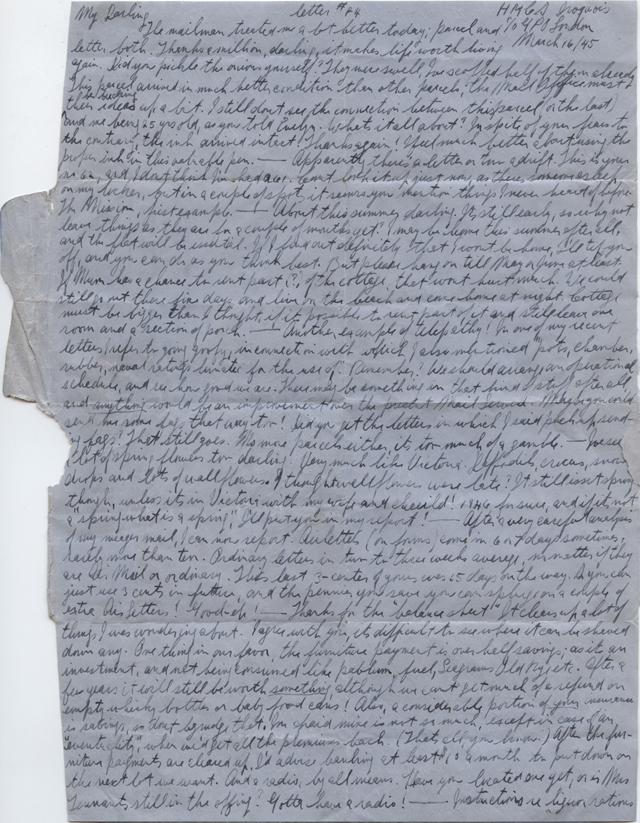 My Darling letter # 24 H.M.C.S. Iroquois
The mailman treated me a lot better today; parcel and c/o G.P.O. London
letter both. Thanks a million, darling, it makes life worth living March 16/45
again. Did you pickle the onions yourself? They were swell, I've scoffed half of them already
This parcel arrived in much better condition than other parcels, the Mail Office must
their ideas up a bit. I still don't see the connection between this parcel (or the last)
and me being 25 yrs old, as you told Evelyn. What's it all about? In spite of your fears to
the contrary, the ink arrived intact! Thanks again! I feel much better about using the
proper ink in this valuable pen. — Apparently there's a letter or two adrift. This is your
no on, and I don't think I've had a 20. Can't look it up just now as there's someone asleep
on my locker, but in a couple of spots, it seems you mention things I never heard of before
The Mission, first example. — About this summer darling. It's still early, so why not
leave things as they are for a couple of months yet. I may be home this summer after all,
and the flat will be useful. If I find out definitely that I won't be home, I'll tip you
off, and you can do as you think best. But please hang on till May or June at least.
If Mum has a chance to rent part (?) of the cottage, that won't hurt much. We could
still go out there fine days and live on the beach and come home at night. Cottage
must be bigger than I thought, if it's possible to rent part of it and still leave one
room and a section of porch. — Another example of telepathy! In one of my recent
letters I refer to going goofy, in connection with which I also mentioned "pots, chamber,
rubber, naval ratings lunatic for the use of". Remember? We should arrange an operational
schedule, and see how good we are. There may be something in that kind of stuff after all,
and anything would be an improvement over the present Mail Service. Maybe you could
send me some fags that way too! Did you get the letters in which I said
fags? That still goes. No more parcels either, it's too much of a gamble. —
a lot of spring flowers too darling. Very much like Victoria. Daffodils, crocus, snow
drops and lots of wallflowers. I thought wallflowers were late? It still isn't spring
though, unless it's in Victoria with my wife and cheeild! 1946 for sure, and if it's not
a "spring what is a spring" I'll put you in my report! — After a very careful analysis
of my meagre mail, I can now report. Air letters (on forms) come in 6 or 7 days sometimes,
rarely more than ten. Ordinary letters in two to three weeks average, no matter if they
are Air Mail or ordinary. This last 3-center of yours was 15 days on the way. So you can
just use 3 cents in future, and the pennies you save you can splurge on a couple of
extra Air Letters! Good-oh! — Thanks for the "balance sheet". It clears up a lot of
things I was wondering about. I agree with you, it's difficult to see where it can be shaved
down any. One thing in our favor, the furniture payment is over half savings, as it's an
investment, and not being consumed like pablum, fuel, Seagrams Old Rye, etc. After a
few years it will still be worth something, although we can't get much of a refund on
empty whisky bottles or baby food cans! Also, a considerable portion of your insurance
is savings, so don't begrudge that. I'm afraid mine is not so much, except in case of "an
eventuality", when we'd get all the premiums back. (That's all you know.) After the fur-
niture payments are cleared up, I'd advise banking at least 10 a month to put down on
the next lot we want. And a radio, by all means. Have you located one yet, or is Mrs
Tennant's still in the offing? Gotta have a radio! — Instructions re liquor rations